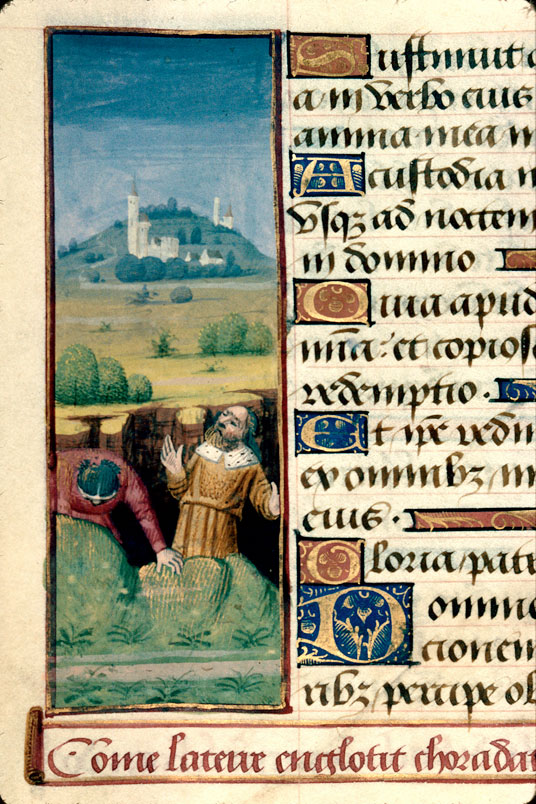 Sustinuit a
a in verbo eius
anima mea in
A custodia m
vsq; ad noctem
in domino
Quia apud
mia: et copios
redemptio.
Et ipe redim
ex omnib; in
eius.
Gloria patri
Domine
cionem
rib; percipe ob
Come la teure englotit choradat